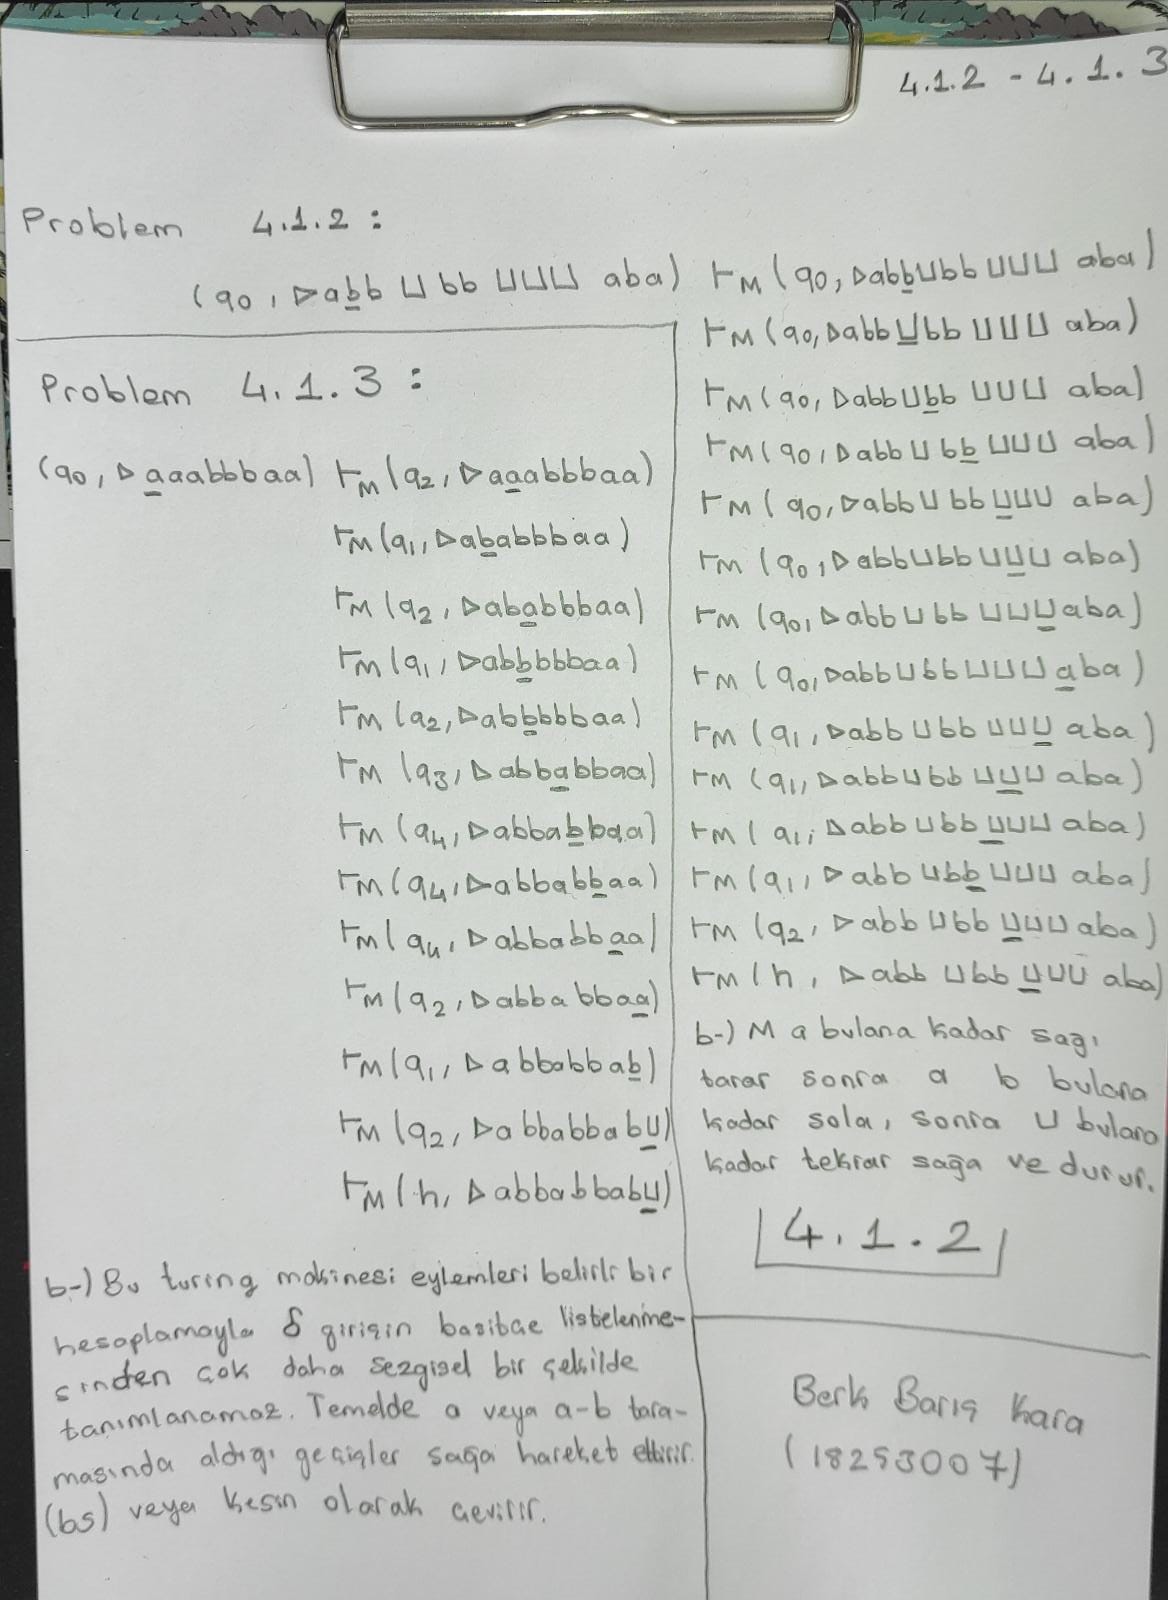 4.1.2 - 4.1.3
Problem 4.1.2 :
(q0, ▷abb⊔bb⊔⊔⊔ aba) ⊢M (q0, ▷abb⊔bb⊔⊔⊔ aba)
⊢M (q0, ▷abb⊔bb⊔⊔⊔ aba)
⊢M (q0, ▷abb⊔bb⊔⊔⊔ aba)
⊢M (q0, ▷abb⊔bb⊔⊔⊔ aba)
⊢M (q0, ▷abb⊔bb⊔⊔⊔ aba)
⊢M (q0, ▷abb⊔bb⊔⊔⊔ aba)
⊢M (q0, ▷abb⊔bb⊔⊔⊔ aba)
⊢M (q0, ▷abb⊔bb⊔⊔⊔ aba)
⊢M (q1, ▷abb⊔bb⊔⊔⊔ aba)
⊢M (q1, ▷abb⊔bb⊔⊔⊔ aba)
⊢M (q1, ▷abb⊔bb⊔⊔⊔ aba)
⊢M (q1, ▷abb⊔bb⊔⊔⊔ aba)
⊢M (q2, ▷abb⊔bb⊔⊔⊔ aba)
⊢M (h, ▷abb⊔bb⊔⊔⊔ aba)
b-) M a bulana kadar sağı
tarar sonra a b bulana
kadar sola, sonra ⊔ bulana
kadar tekrar sağa ve durur.
4.1.2
Problem 4.1.3 :
(q0, ▷aaabbbaa) ⊢M (q2, ▷aaabbbaa)
⊢M (q1, ▷ababbbaa)
⊢M (q2, ▷ababbbaa)
⊢M (q1, ▷abbbbbaa)
⊢M (q2, ▷abbbbbaa)
⊢M (q3, ▷abbabbaa)
⊢M (q4, ▷abbabbaa)
⊢M (q4, ▷abbabbaa)
⊢M (q4, ▷abbabbaa)
⊢M (q2, ▷abbabbaa)
⊢M (q1, ▷abbabbab)
⊢M (q2, ▷abbabbab⊔)
⊢M (h, ▷abbabbab⊔)
b-) Bu turing makinesi eylemleri belirli bir
hesaplamayla δ girişin basitçe listelenme-
sinden çok daha sezgisel bir şekilde
tanımlanamaz. Temelde a veya a-b tara-
masında aldığı geçişler sağa hareket ettirir.
(bs) veya kesin olarak çevirir.
Berk Barış Kara
(18253007)